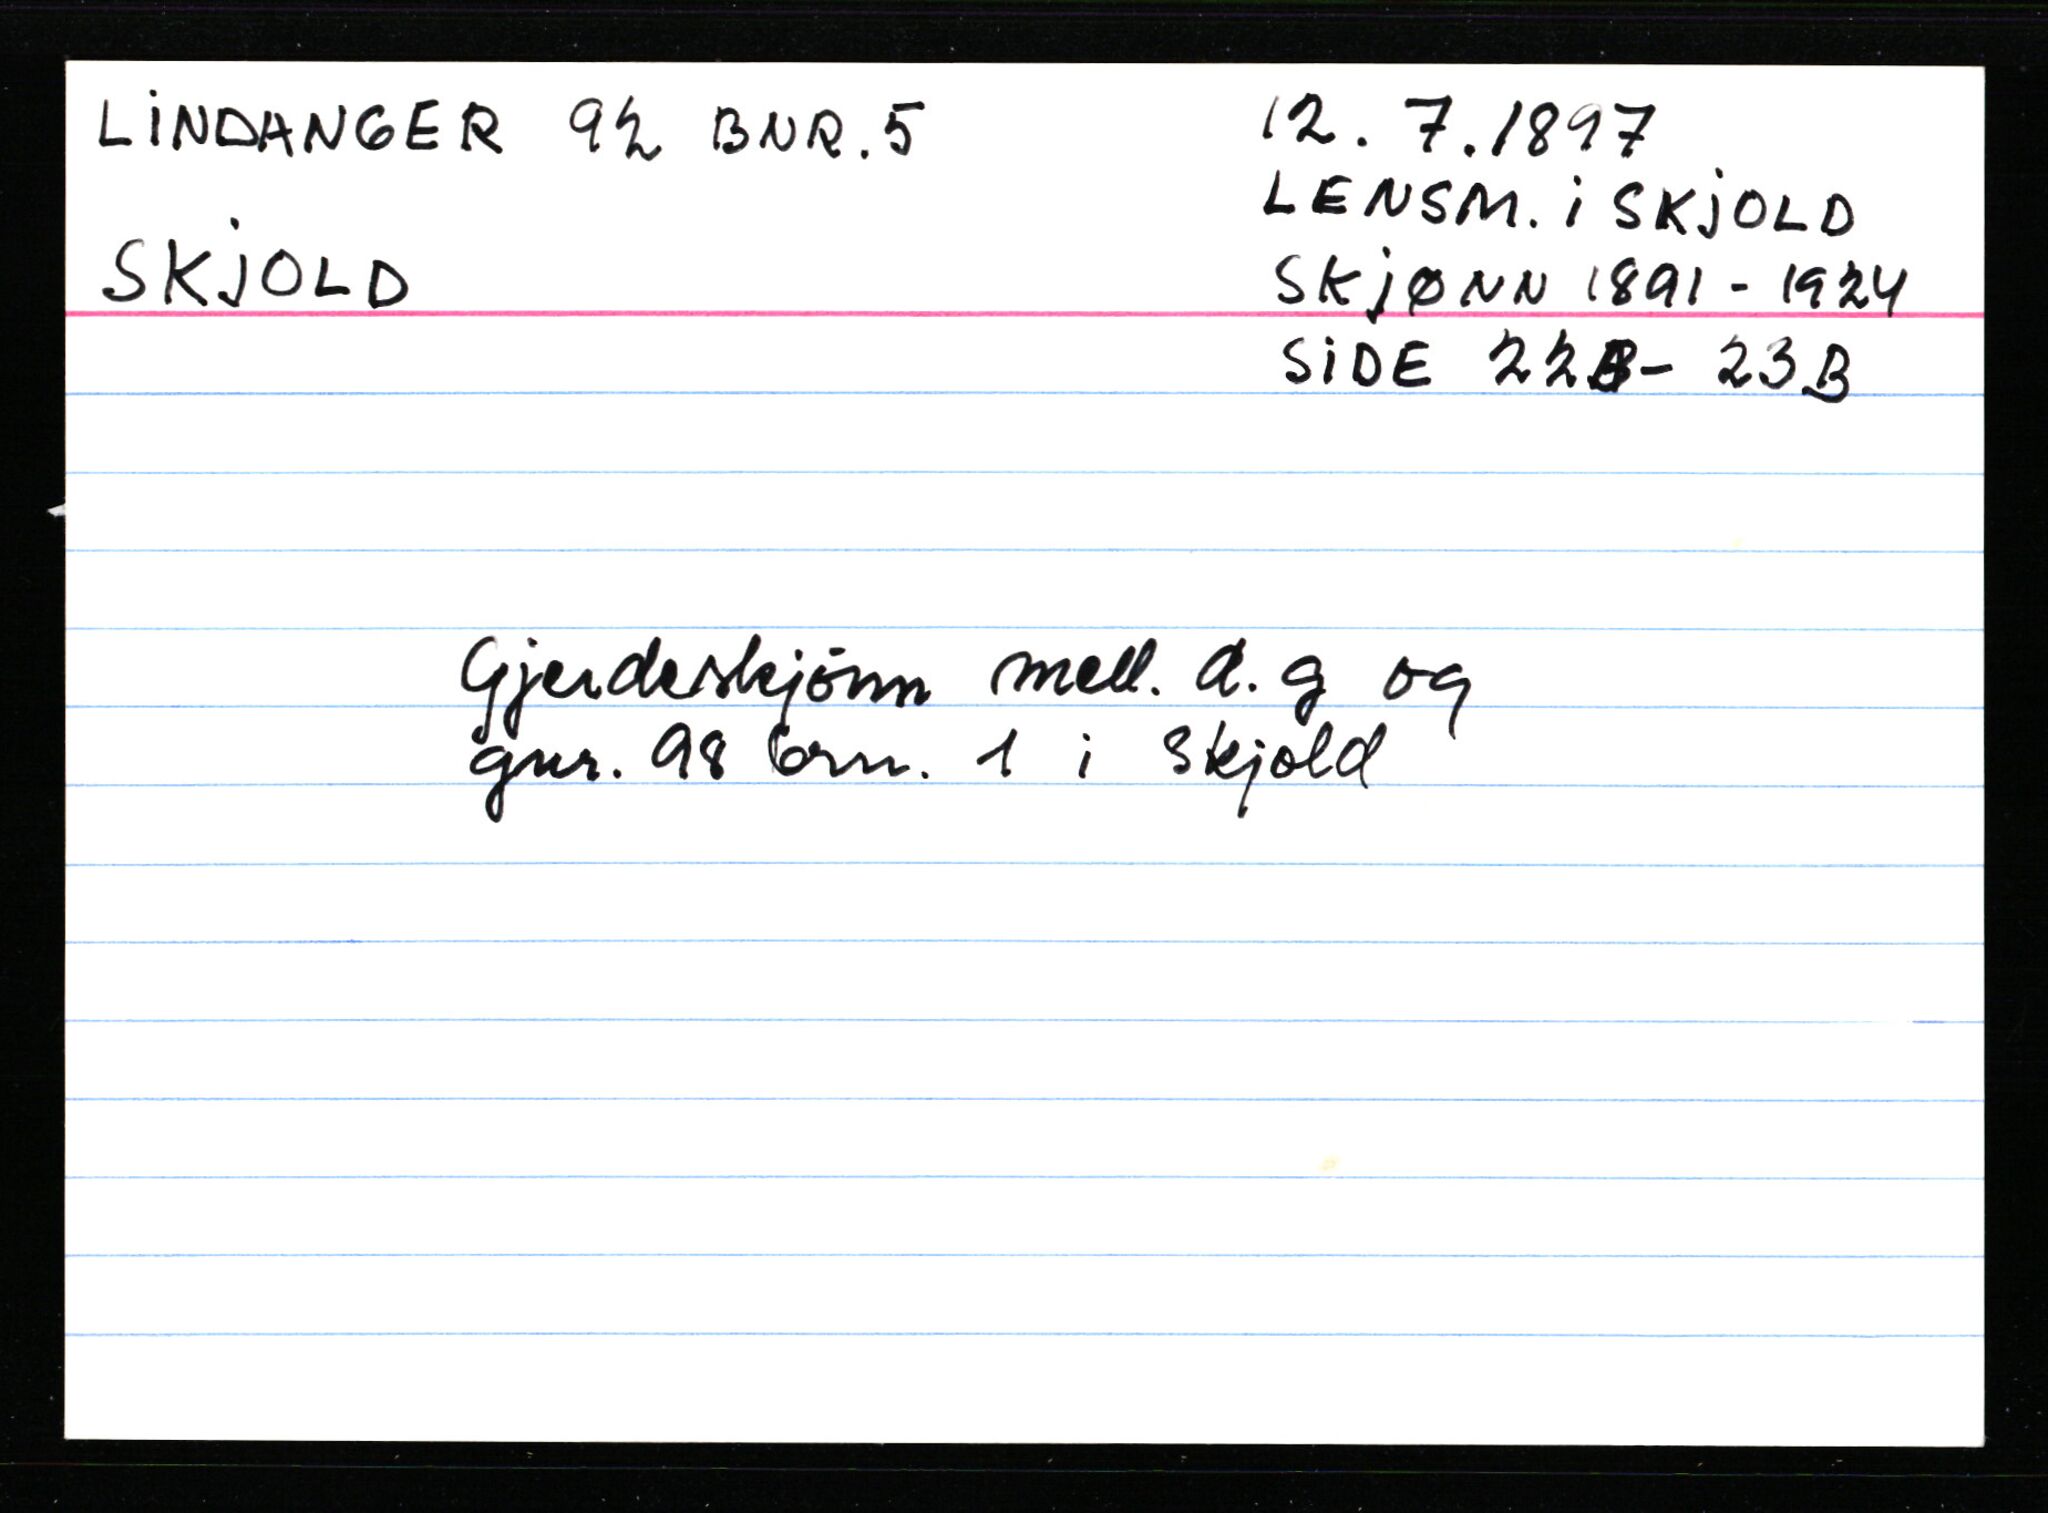 LINDANGER 92 BNR. 5
SKJOLD
12. 7. 1897
LENSM. i SKJOLD
SKJØNN 1891 - 1924
SIDE 22B - 23B
Gjerdeskjønn mell. d. g og
gnr. 98 brn. 1 i Skjold